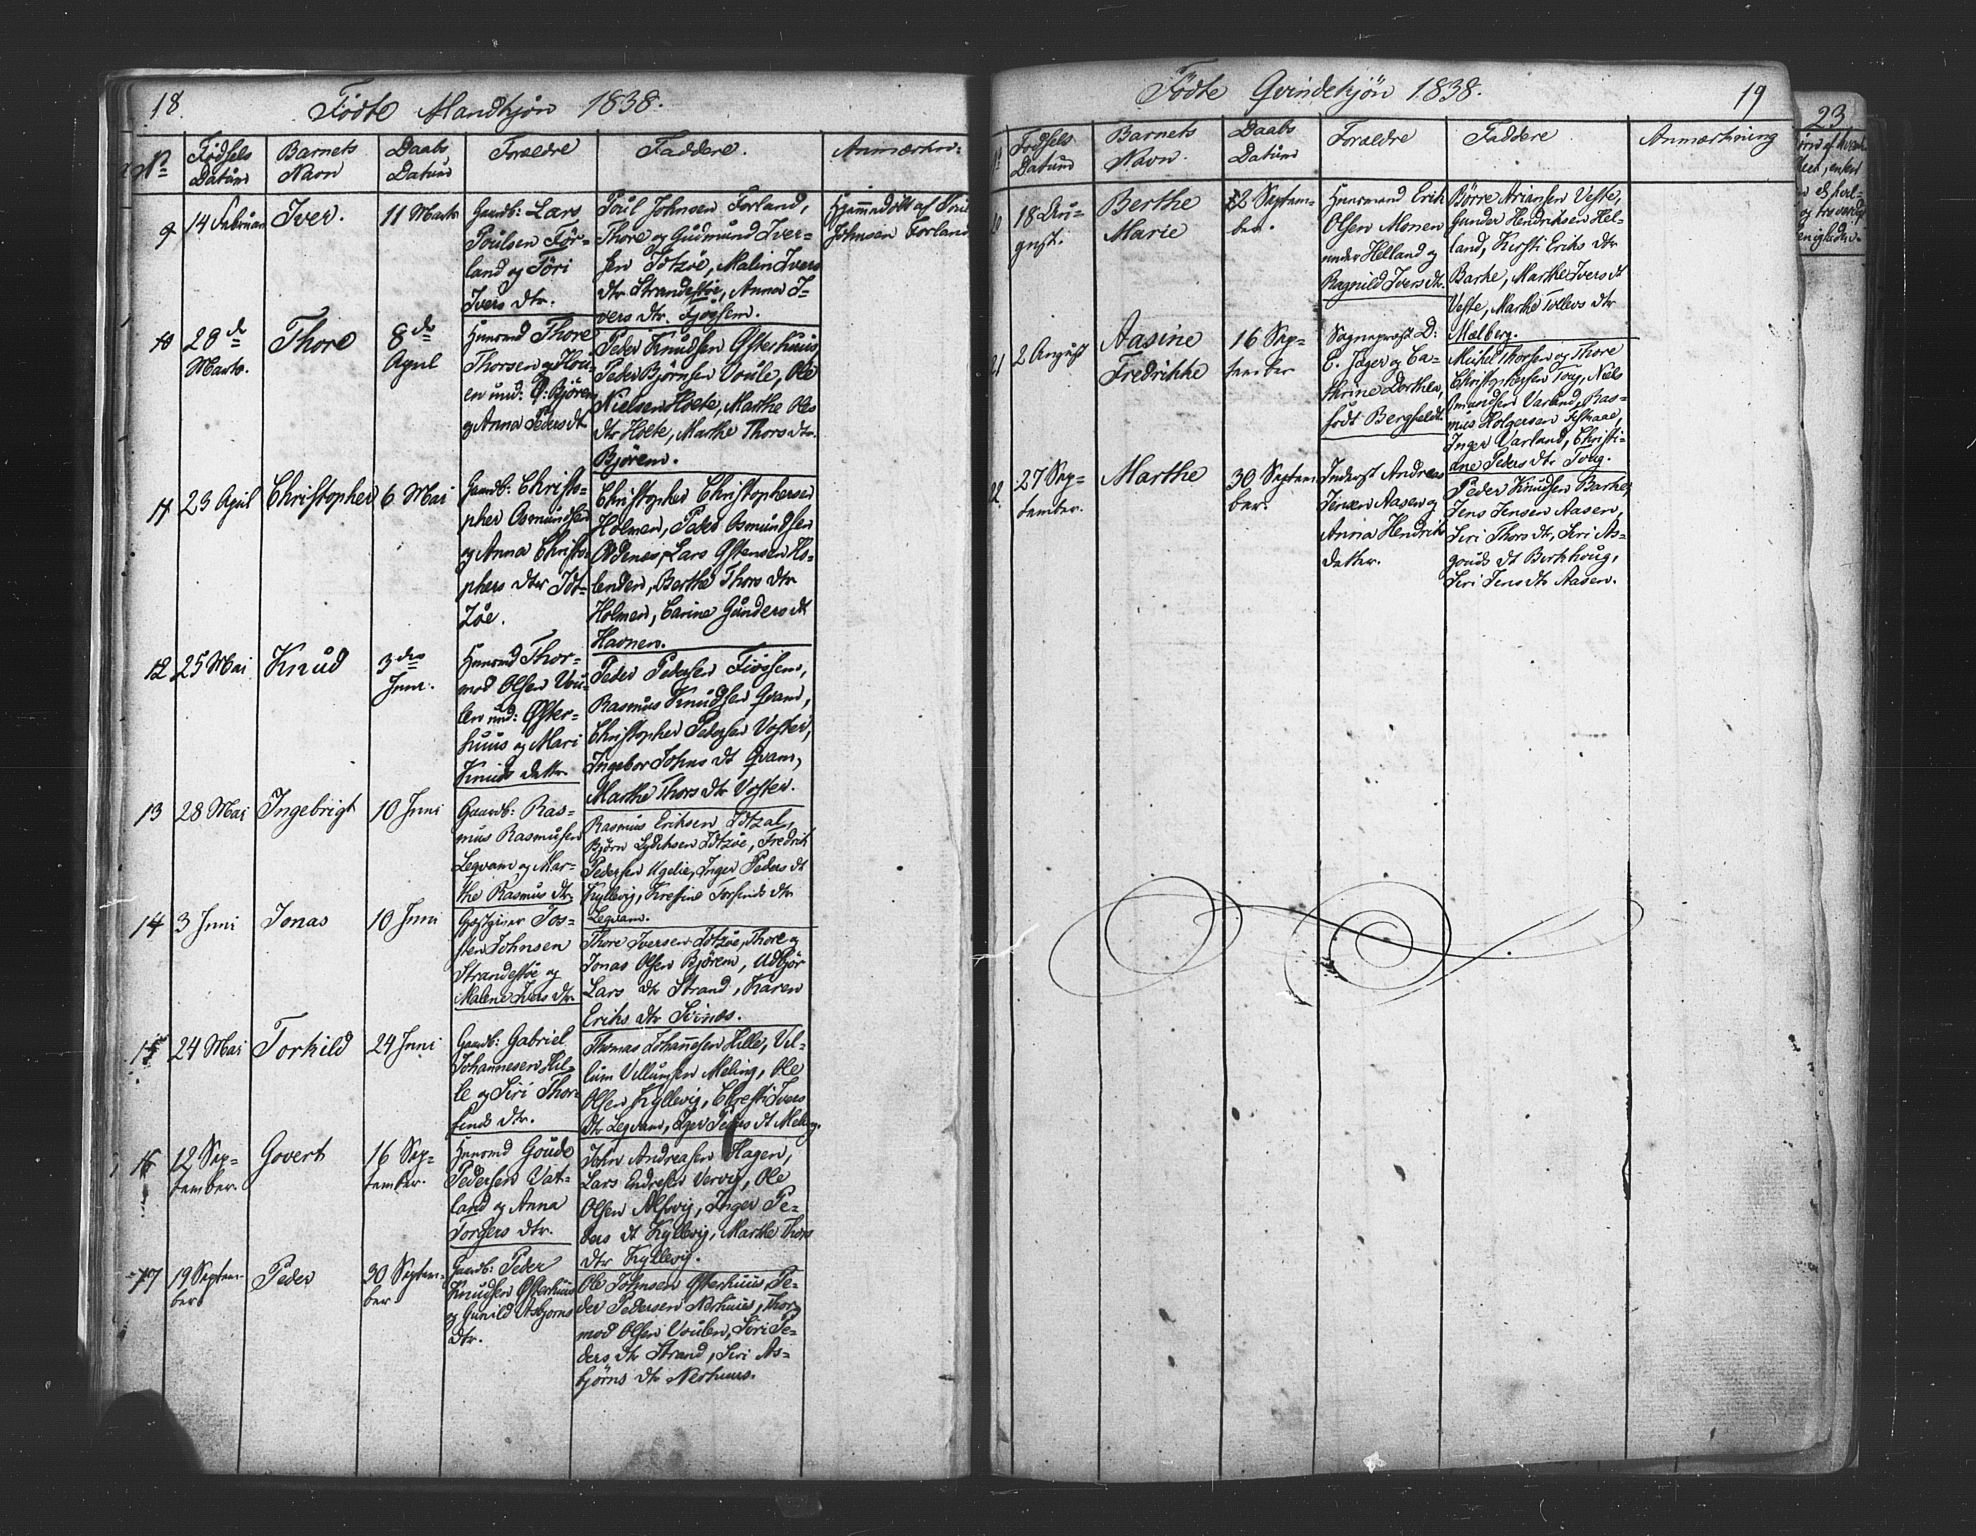 18.
Fødte Mandkjøn 1838.
No
Fødsels Datum
Barnets Navn
Daabs Datum
Forældre
Faddere.
Anmærkn:
9
14 Februar
Iver.
11 Marts
Gaardb: Lars
Poulsen Før-
land og Tøri
Ivers dtr.
Poul Johnsen Førland,
Thore og Gudmund Iver-
sen Totzøe, Malin Ivers
dtr Strandestøe, Anna I-
vers dtr. Fjøgsem.
Hjemmedøbt af Poul
Johnsen Førland
10
28de
Marts.
Thore
8de
April
Huusmd Thore
Thorsen og
Anna Peders dt
Peder Knudsen Østerhuus,
Peder Bjørnsen Voule, Ole
Nielsen Holte, Marthe Ols
dtr Holte, Marthe Thors dtr.
Bjørem.
11
23 April
Christopher
6 Mai
Gaardb: Christo-
pher Osmundsen
og Anna Christo-
phers dtr Tot-
zøe.
Christopher Christophersen
Holmen, Peder Osmundsen
Odenes, Lars Østensen Es-
lenden, Berthe Thors dtr
Holmen, Carine Gunders dt
Havnen.
12
25 Mai
Knud
3die
Juni.
Huusmd Thor-
mod Olsen Vou-
len und: Øster-
huus og Mari
Knuds datter.
Peder Pedersen Fiøgsem,
Rasmus Knudsen Qvam,
Christopher Pedersen Vogter,
Ingebor Johns dt Qvam,
Marthe Thors dtr Vogter.
13
28 Mai
Ingebrigt
10 Juni
Gaardb: Ras-
mus Rasmusen
Leqvam og Mar-
the Rasmus dtr.
Rasmus Eriksen Totzal,
Bjørn Lydichsen Totzøe, Fredrik
Pedersen Ugelie, Inger Peders dt
Kyllevig, Torfinds dtr
Leqvam.
14
3 Juni
Jonas
10 Juni
Gjestgiver Tos-
ten Johnsen
Strandestøe og
Malene Ivers dtr.
Thore Iversen Totzøe, Thore og
Jonas Olsen Bjørem, Udbjør
Lars dtr Strand, Karen
Eriks dtr Sirnes.
15
24 Mai
Torkild
24 Juni
Gaardb: Gabriel
Johannesen Hil-
le og Siri Thor-
finds dtr.
Thomas Johannesen Hille, Vil-
lum Villumsen Meling, Ole
Olsen Kyllevig, Chresti Ivers
dtr Leqvam, Inger Peders dt Meling.
16
12 Sep-
tember.
Govert
16 Sep-
tember.
Huusmd Goude
Pedersen Vat-
land og Anna
Torgers dtr.
John Andreasen Hagen,
Lars Endresen Vervig, Ole
Olsen Alfsvig, Inger Pe-
ders dt Kyllevig, Marthe Thors
dtr Kyllevig.
17
19 Septem-
ber
Peder
30 Septem-
ber
Gaardb: Peder
Knudsen Østerhuus
og Gunild Asbjørns
dtr.
Ole Johnsen Østerhuus, Pe-
der Pedersen Nerhuus, Thor-
mod Olsen Voulen, Siri Pe-
ders dtr Strand, Siri As-
bjørns dtr Nerhuus.
Fødte Qvindekjøn 1838.
19
No
Fødsels Datum
Barnets Navn.
Daabs Datum
Forældre
Faddere
Anmærkning
20
18 Au-
gust.
Berthe
Marie
2 Septem-
ber.
Huusmand Erik
Olsen Monen
under Helland og
Ragnild Ivers dtr.
Børre Ariansen Veste,
Gunder Hendriksen Hel-
land, Kirsti Eriks dtr
Barke, Marthe Ivers dt
Veste, Marthe Tollevs dtr
Mælberg.
21
2 August
Aasine
Fredrikke
16 Sep-
tember
Sogneprest D:
C. Jæger og Ca-
thrine Dorthea,
født Bergfeldt.
Michel Thorsen og Thore
Christophersen Toug, Niels
Omundsen Varland, Ras-
mus Holgersen
Inger Varland, Christi-
ane Peders dtr Toug.
22
27 Sep-
tember.
Marthe
30 Septem-
ber.
Inderst Andreas
Jensen Aasen og
Anna Hendriks
datter.
Peder Knudsen Barke,
Jens Jensen Aasen,
Siri Thors dtr, Siri As-
gouds dt Berkhoug,
Siri Jens dtr Aasen.
23